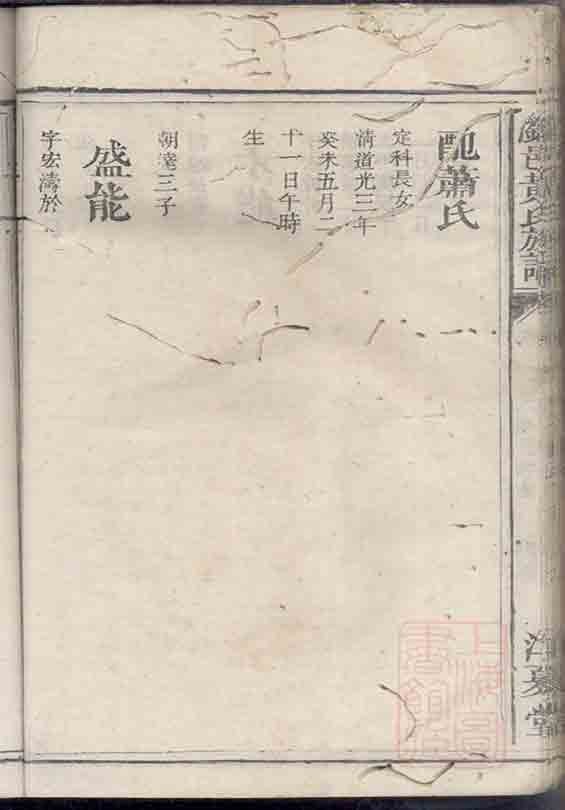 配蕭氏
定科長女
清道光三年
癸未五月二
十一日午時
生
盛能
朝達三子
字宏濤於
黃氏族譜
江夏堂
上海圖書館藏